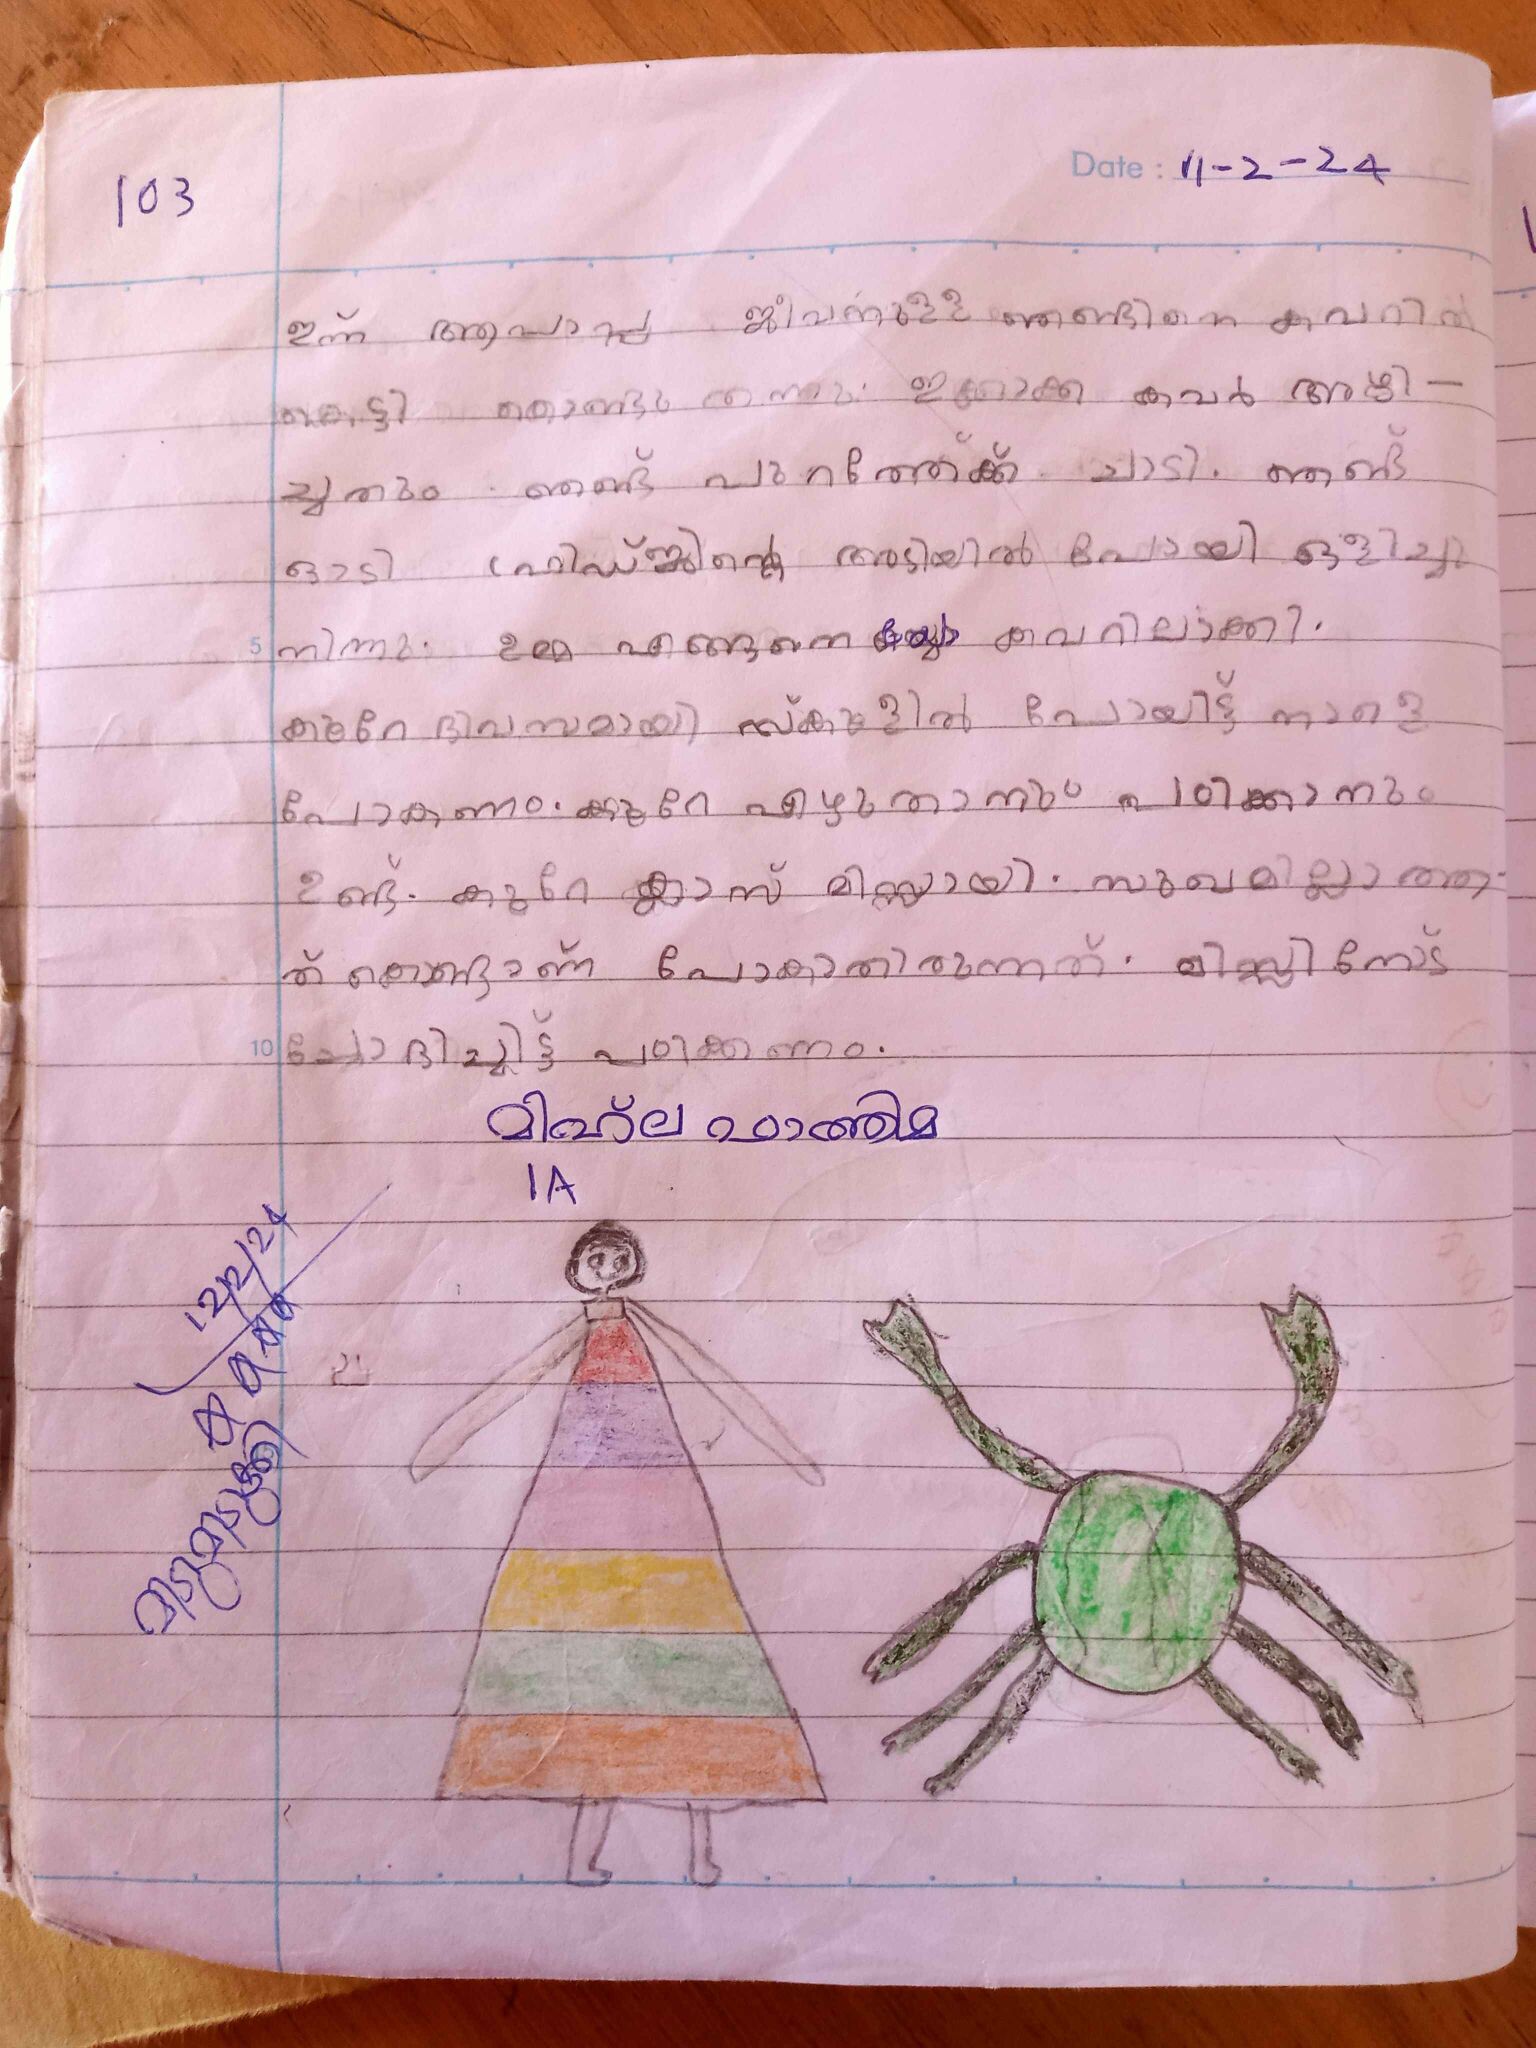 103
Date : 11-2-24
ഇന്ന് ആപ്പാപ്പ ജീവനുള്ള ഞണ്ടിനെ കവറിൽ
കെട്ടി കൊണ്ടു തന്നു. ഇക്കാക്ക കവർ അഴി-
ച്ചതും. ഞണ്ട് പുറത്തേയ്ക്ക് ചാടി. ഞണ്ട്
ഓടി ഫ്രിഡ്ജിന്റെ അടിയിൽ പോയി ഒളിച്ചു
5
നിന്നു. ഉമ്മ എങ്ങനെ കവറിലാക്കി.
കുറേ ദിവസമായി സ്കൂളിൽ പോയിട്ട് നാളെ
പോകണം. കുറേ എഴുതാനും പഠിക്കാനും
ഉണ്ട്. കുറേ ക്ലാസ് മിസ്സായി. സുഖമില്ലാത്ത
ത് കൊണ്ടാണ് പോകാതിരുന്നത്. മിസ്സിനോട്
10
ചോദിച്ചിട്ട് പഠിക്കണം.
മിഹ്‌ല ഫാത്തിമ
1A
12/2/24
മിടുമിടുക്കി